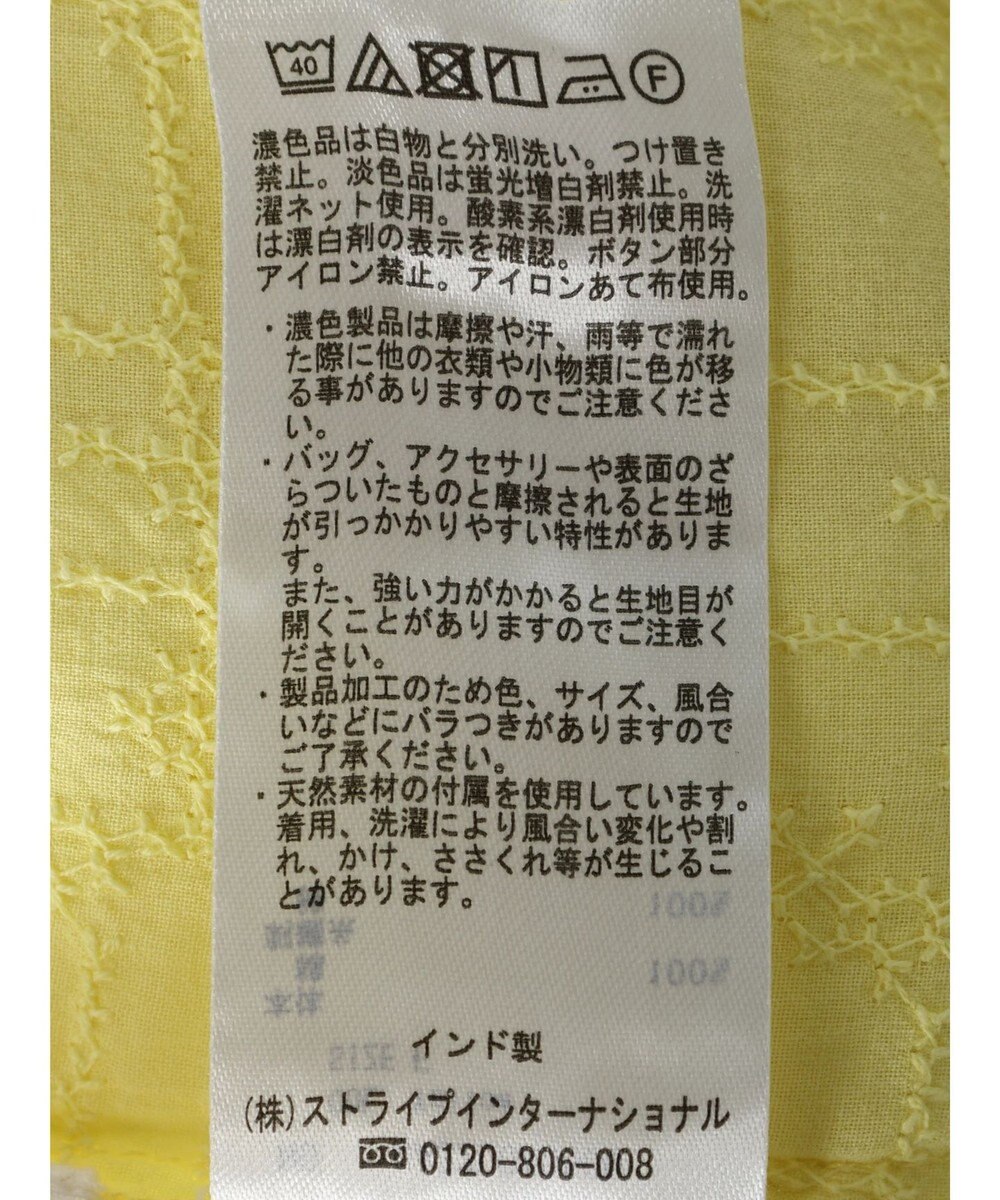 40 F
濃色品は白物と分別洗い。つけ置き
禁止。淡色品は蛍光増白剤禁止。洗
濯ネット使用。酸素系漂白剤使用時
は漂白剤の表示を確認。ボタン部分
アイロン禁止。アイロンあて布使用。
・濃色製品は摩擦や汗、雨等で濡れ
た際に他の衣類や小物類に色が移
る事がありますのでご注意くださ
い。
・バッグ、アクセサリーや表面のざ
らついたものと摩擦されると生地
が引っかかりやすい特性がありま
す。
また、強い力がかかると生地目が
開くことがありますのでご注意く
ださい。
・製品加工のため色、サイズ、風合
いなどにバラつきがありますので
ご了承ください。
・天然素材の付属を使用しています。
着用、洗濯により風合い変化や割
れ、かけ、ささくれ等が生じるこ
とがあります。
100%
100%
本体
SIZE F
インド製
(株)ストライプインターナショナル
0120-806-008